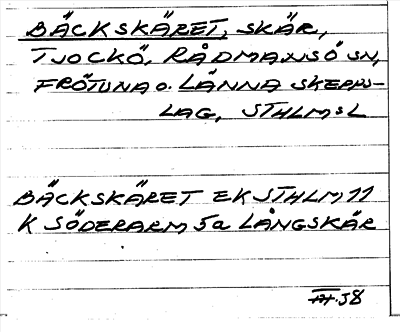 BÄCKSKÄRET, SKÄR,
TJOCKÖ, RÅDMANSÖ SN,
FRÖTUNA O. LÄNNA SKEPPS-
LAG, STHLMS L
BÄCKSKÄRET EK STHLM 11
K SÖDERARM 5a LÅNGSKÄR
58